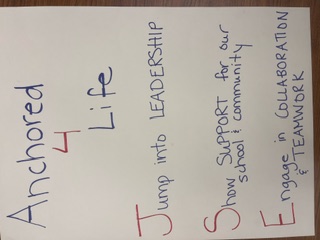 Anchored
4
Life
Jump into LEADERSHIP
Show SUPPORT for our
school & community
Engage in COLLABORATION
& TEAMWORK